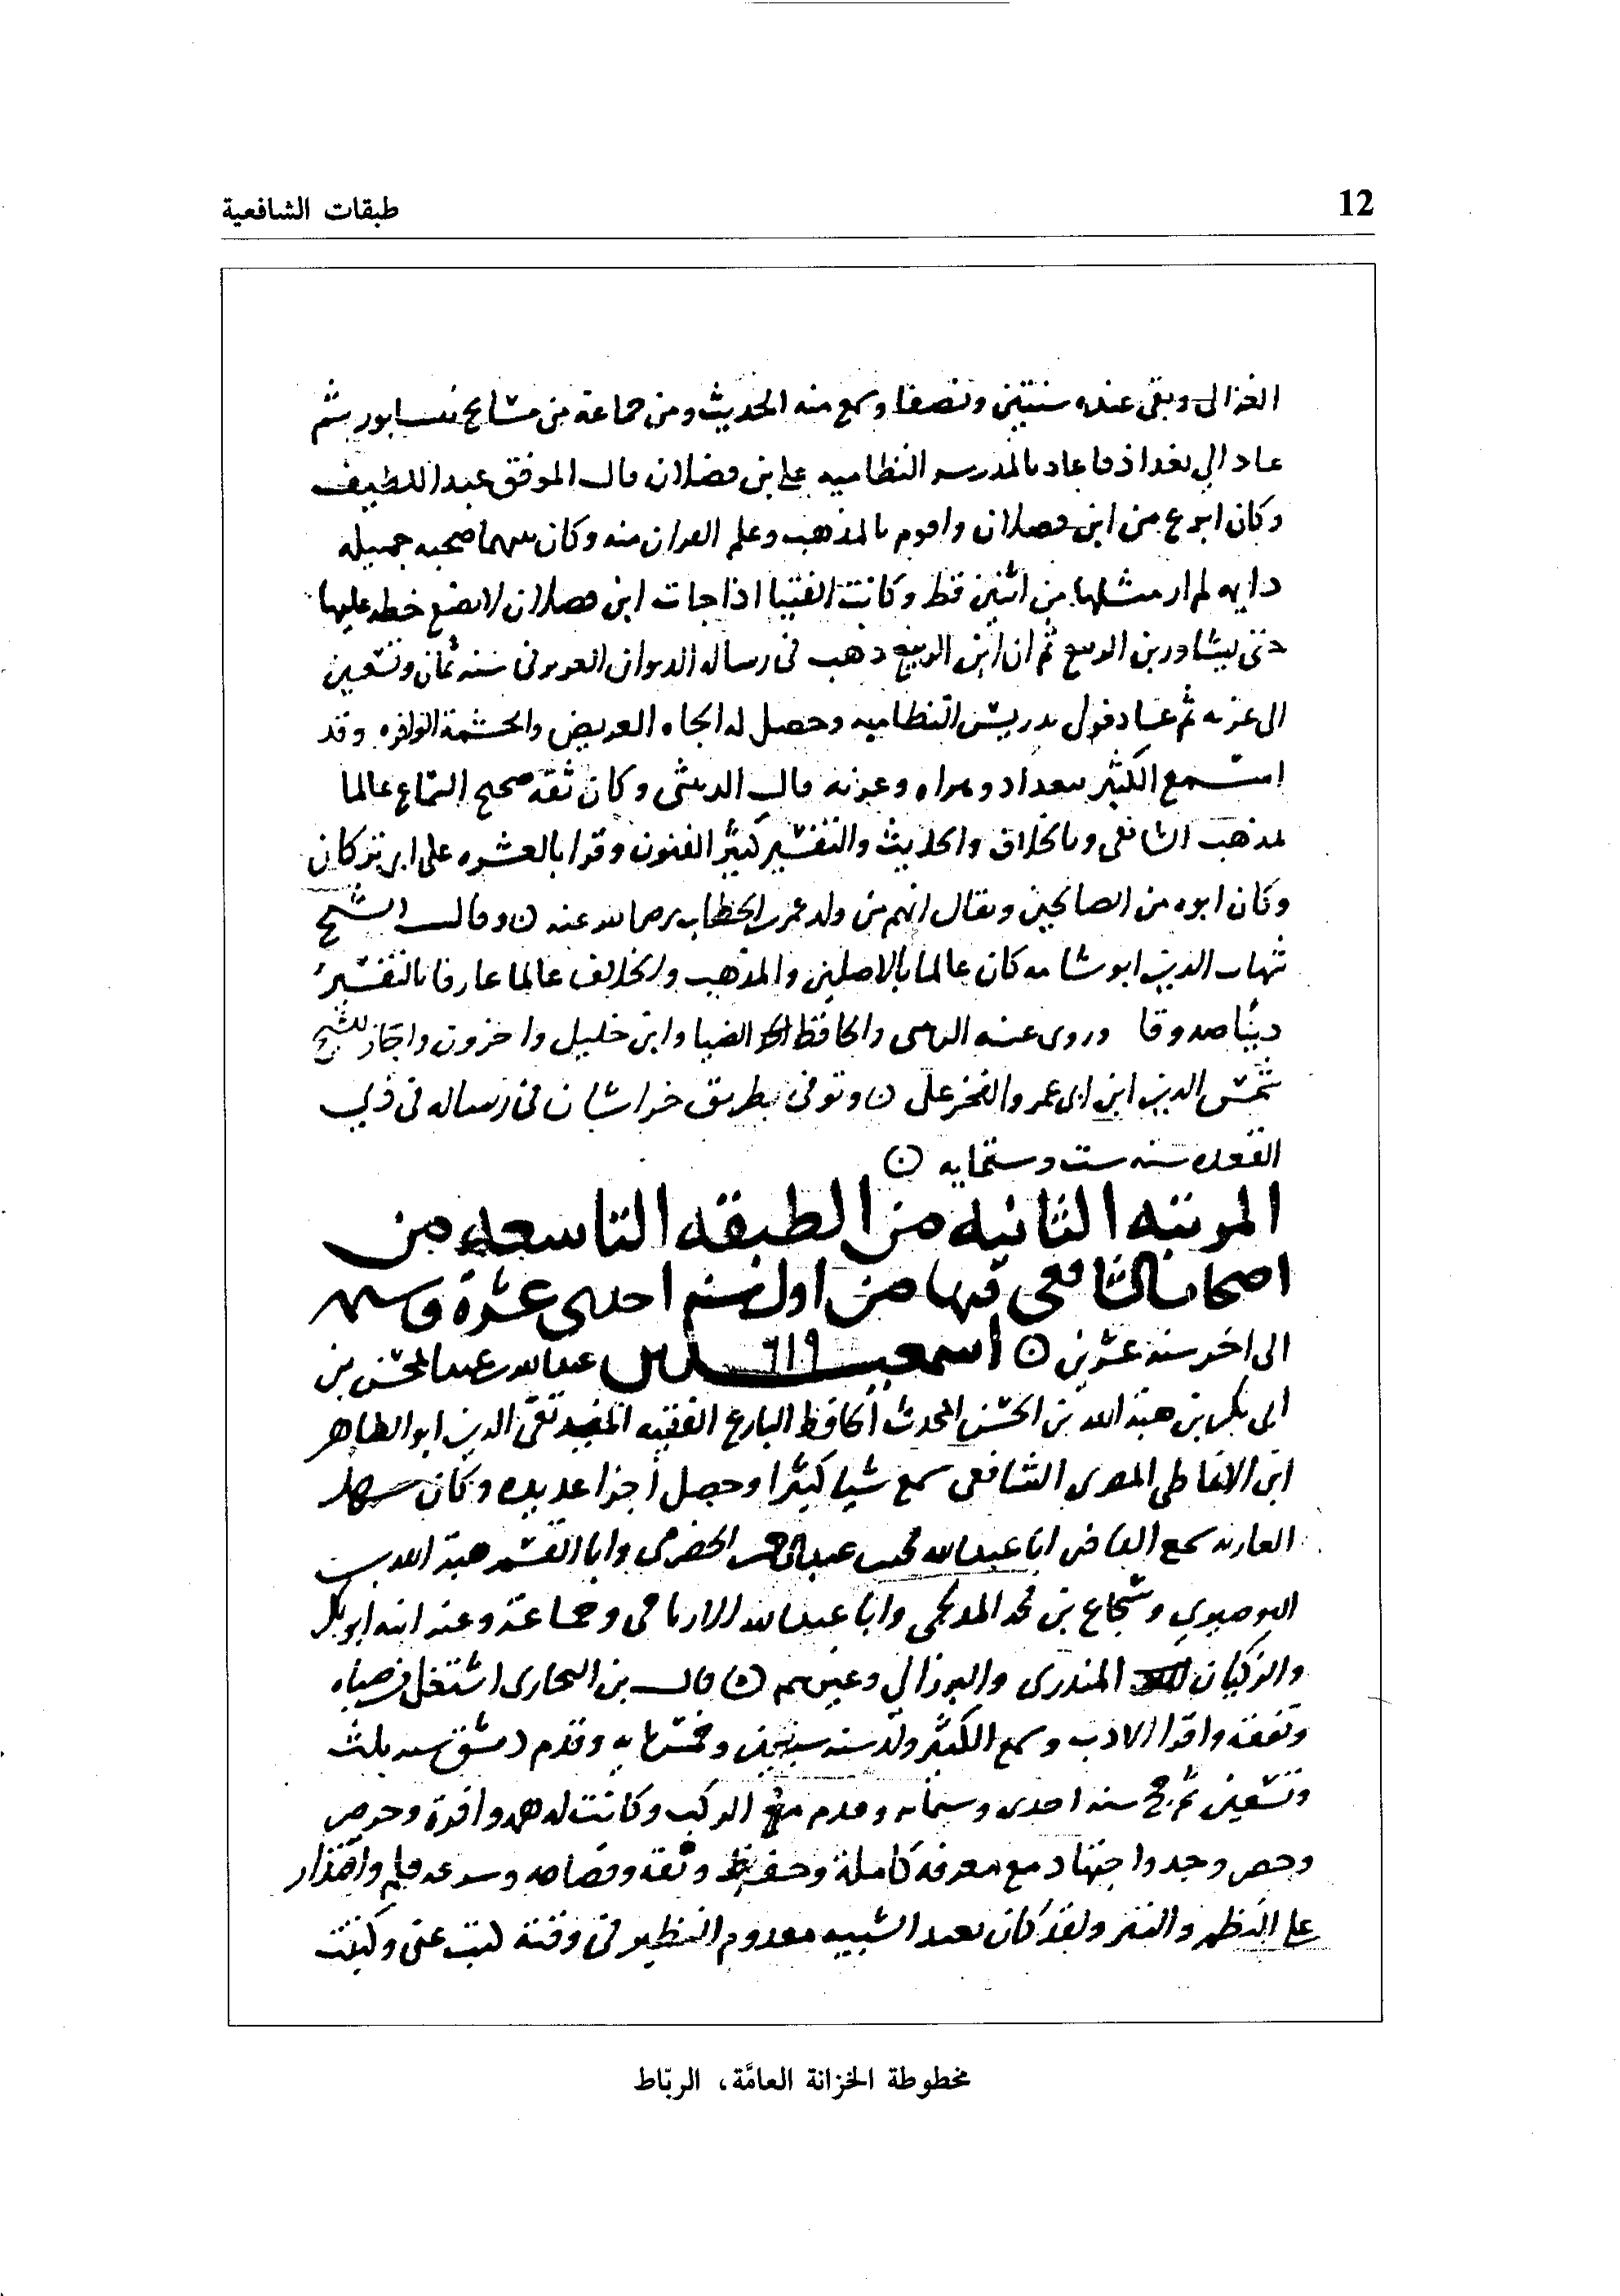 12
طبقات الشافعية
الغزالى وبقى عنده سنتين ونصفا وسمع منه الحديث ومن جماعة من مشايخ نيسابور ثم
عاد الى بغداذ فاعاد بالمدرسه النظاميه على ابن فضلان قال الموفق عبد اللطيف
وكان ابرع من ابن فضلان واقوم بالمذهب وعلم القران منه وكان بينهما صحبه جميله
دايمه لم ار مثلها من اثنين قط وكانت الفتيا اذا جات ابن فضلان لا يضع خطه عليها
حتى يشاور بن الربيع ثم ان ابن الربيع ذهب فى رساله الديوان العزيز فى سنه ثمان وتسعين
الى غزنه ثم عاد فولى تدريس النظاميه وحصل له الجاه العريض والحشمة الوافره وقد
استمع الكثير ببغداد وهراه وغزنه قال الدبيثى وكان ثقه صحيح السماع عالما
لمذهب الشافعى وبالخلاف والحديث والتفسير كثير الفنون وقرا بالعشره على ابن تركان
وكان ابوه من الصالحين ويقال انهم من ولد عمر بن الخطاب رضى الله عنه ن وقال الشيخ
شهاب الدين ابو شامه كان عالما بالاصلين والمذهب والخلاف عالما عارفا بالتفسير
دينا صدوقا وروى عنه الدبيثى والحافظ الضيا وابن خليل واخرون واجاز للشيخ
شمس الدين ابن ابى عمر والفخر على ن وتوفى بطريق خراسان فى رساله فى ذي
القعده سنه ست وستمايه ن
المرتبه الثانيه من الطبقه التاسعه من
اصحاب الشافعى فيها من اول سنه احدى عشرة وستمايه
الى اخر سنه عشرين ن اسمعيل بن عبد الله بن عبد المحسن بن
٦١٩
ابى بكر بن هبة الله بن الحسن المحدث الحافظ البارع الفقيه المفيد تقى الدين ابو الطاهر
ابن الانماطى المصرى الشافعى سمع شيا كثيرا وحصل اجزا عديده وكان سهل
العاريه سمع القاضى ابا عبد الله محمد بن عبد الرحمن الحضرمى وابا القسم هبة الله بن
البوصيري وشجاع بن محمد المدلجى وابا عبد الله الارتاحى وجماعة وعنه ابنه ابو بكر
والزكيان المنذرى والبرزالى وغيرهم ن قال بن النجارى اشتغل فى صباه
وتفقه واقرا الادب وسمع الكثير ولد سنه سبعين وخمسمايه وقدم دمشق سنه ثلث
وتسعين ثم حج سنه احدى وستمائه وقدم مع الركب وكانت له همه وافرة وحرص
وجد واجتهاد مع معرفة كاملة وحفظ وثقه وفصاحه وسرعه قلم واقتدار
على النظم والنثر ولقد كان بعيد الشبيه معدوم النظير فى وقته كتب عنى وكتبت
مخطوطة الخزانة العامَّة، الربّاط